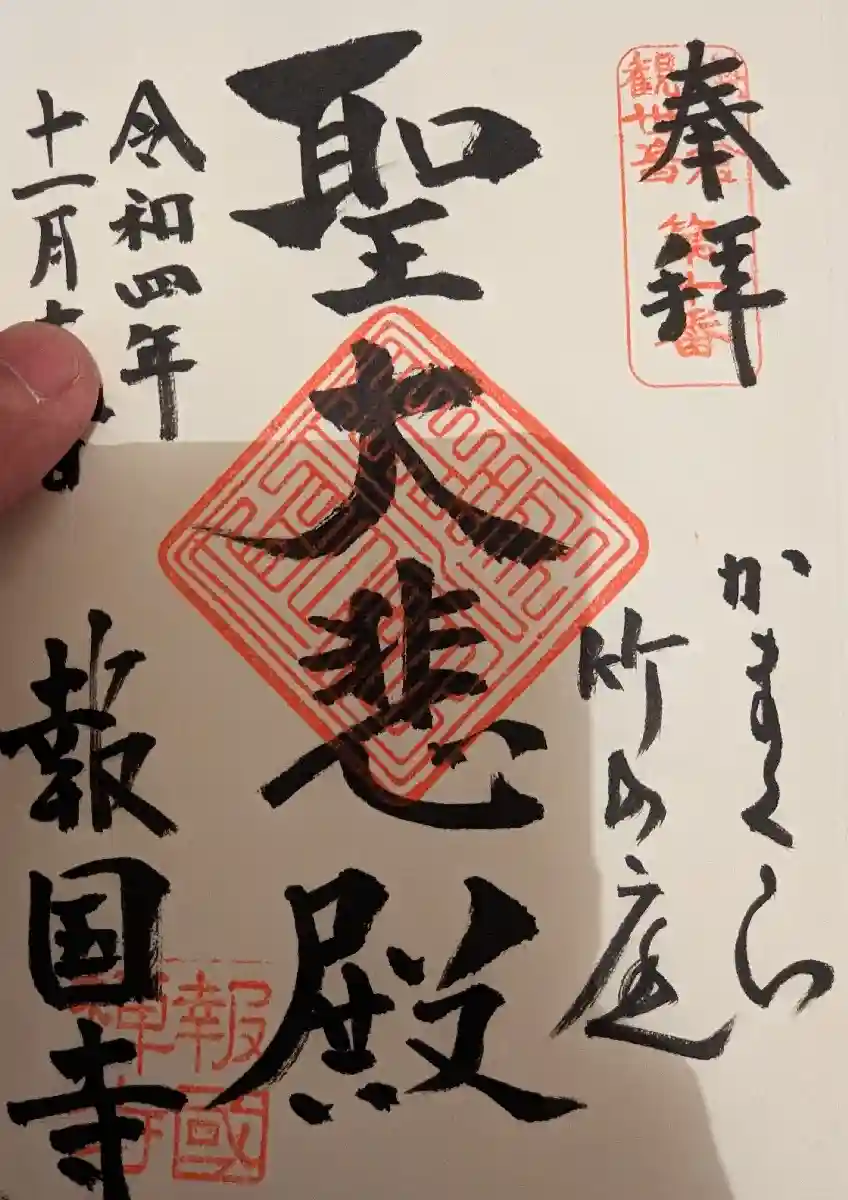 奉拝
観世音
第十番
かまくら
竹の庭
聖大悲殿
令和四年
十一月
報国寺
報國
禅寺